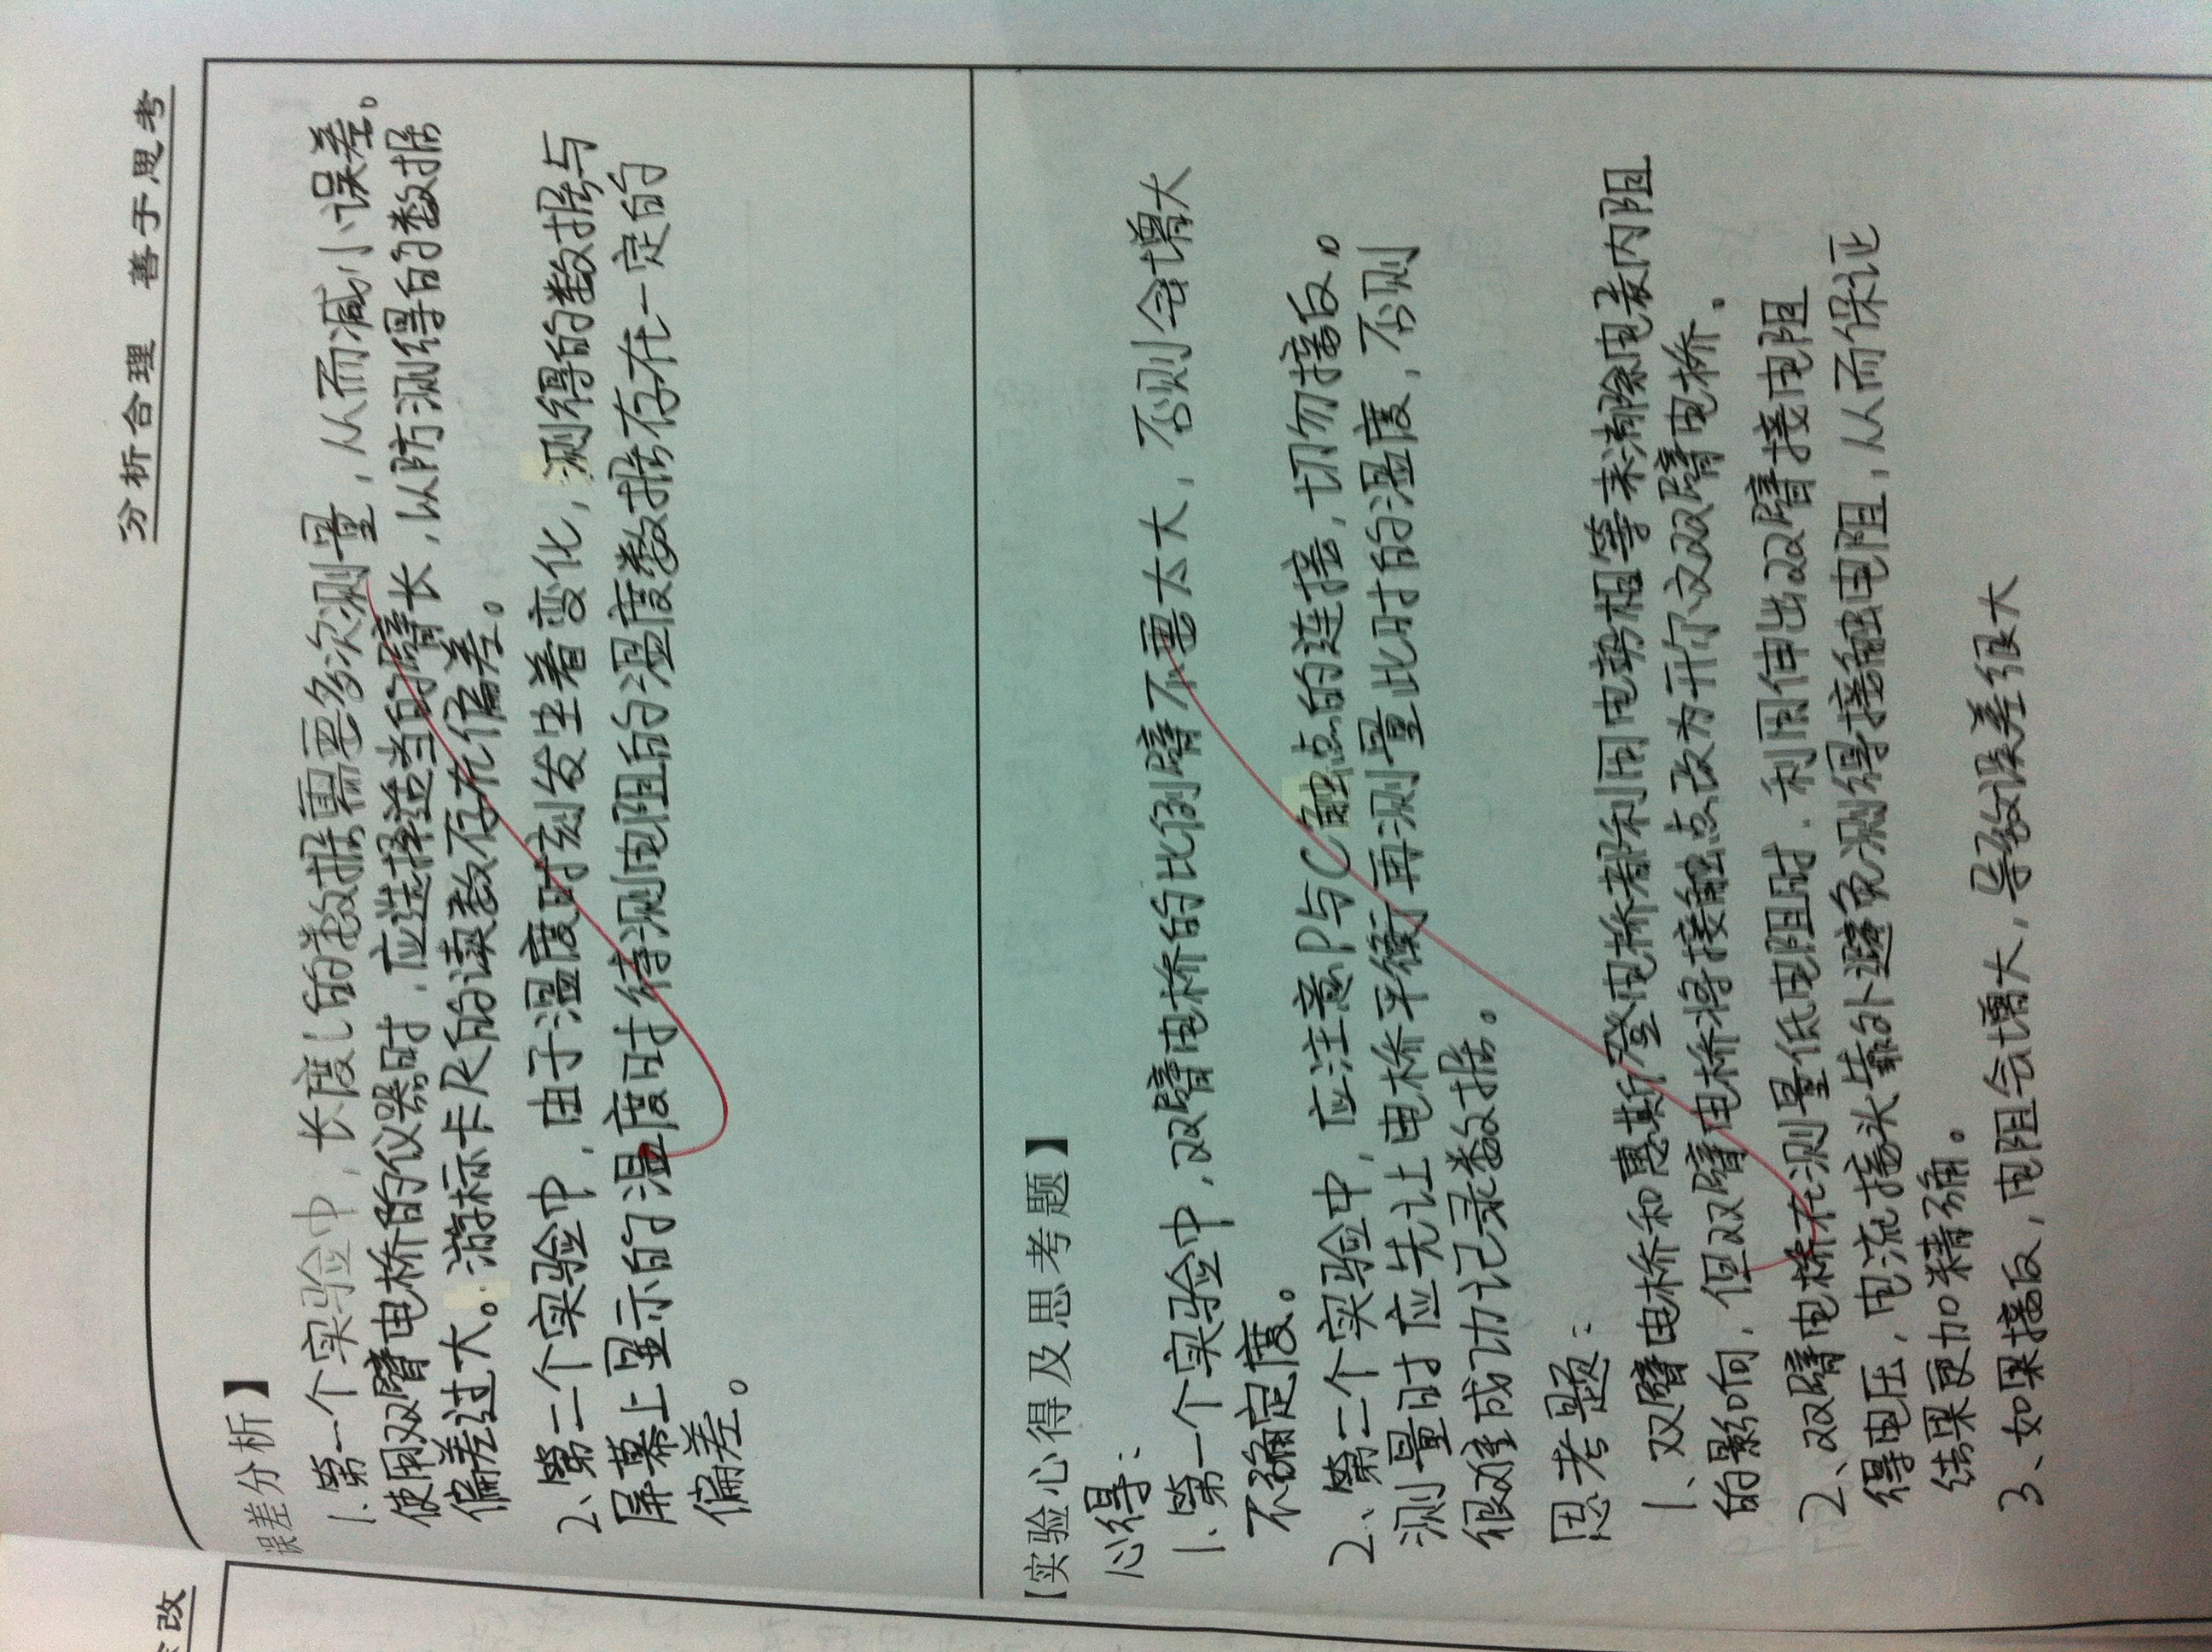 分析合理 善于思考
余改
误差分析】
1.第一个实验中，长度l的数据需要多次测量，从而减小误差。
使用双臂电桥的仪器时，应选择适当的臂长，以防测得的数据
偏差过大。游标卡尺的读数存在偏差。
2、第二个实验中，由于温度时刻发生着变化，测得的数据与
屏幕上显示的温度时待测电阻的温度数据存在一定的
偏差。
【实验心得及思考题】
心得：
1.第一个实验中，双臂电桥的比例臂不要太大，否则会增大
不确定度。
2、第二个实验中，应注意P与C触点的连接，切勿接反。
测量时应先让电桥平衡再测量此时的温度，否则
很难成功记录数据。
思考题：
1、双臂电桥和惠斯登电桥都利用电势相等来消除电表内阻
的影响，但双臂电桥将接触点改为开尔文双臂电桥。
2、双臂电桥在测量低电阻时，利用伸出双臂接电阻
得电压，电流接头靠外避免测得接触电阻，从而保证
结果更加精确。
3、如果接反，电阻会增大，导致误差很大